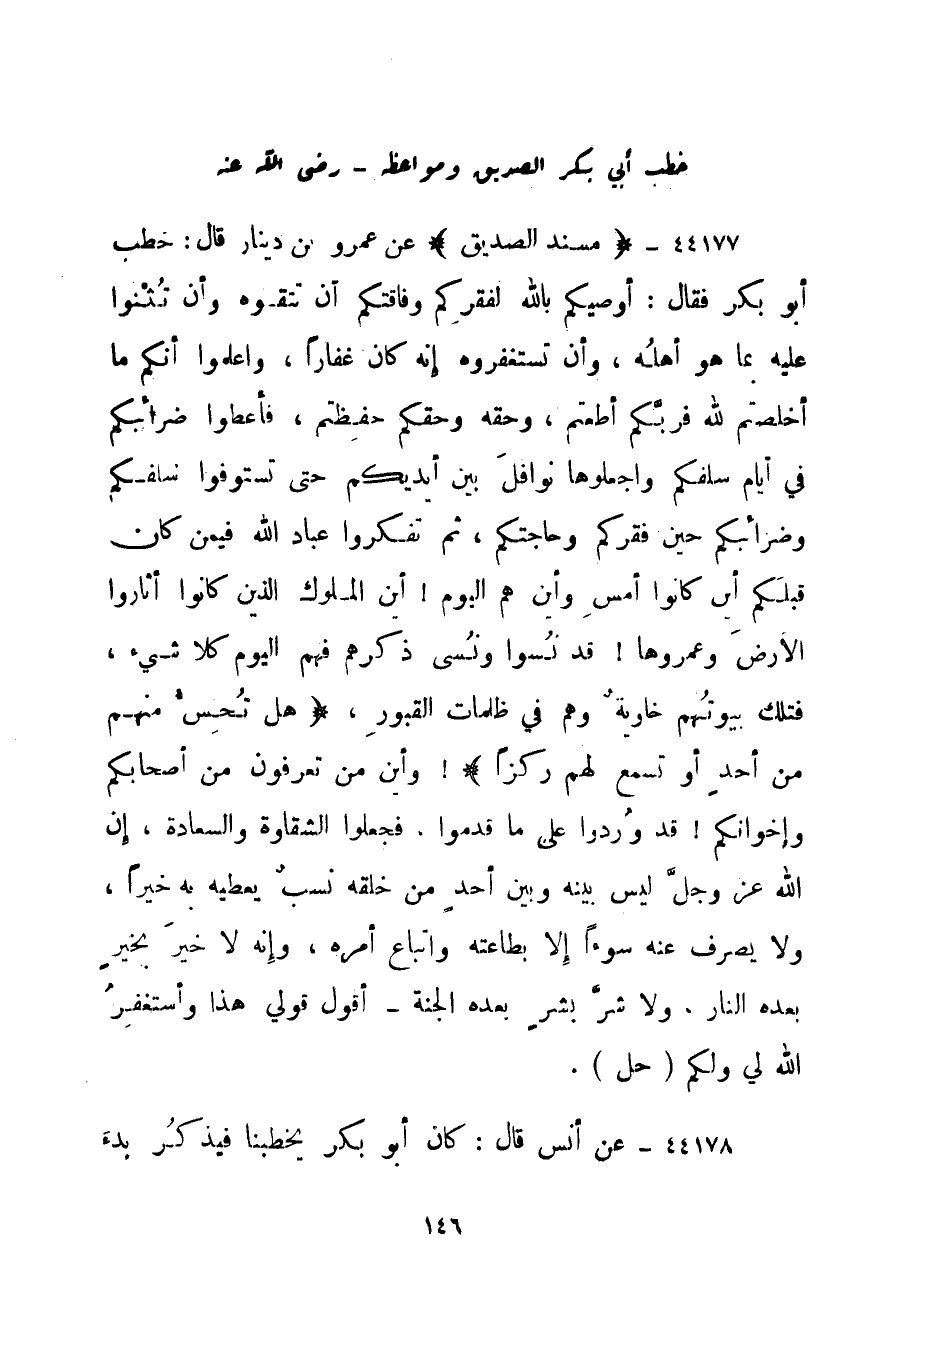 خطب أبي بكر الصديق ومواعظه - رضى الله عنه
٤٤١٧٧ - ﴿ مسند الصديق ﴾ عن عمرو بن دينار قال : خطب
أبو بكر فقال : أوصيكم بالله لفقركم وفاقتكم أن تتقوه وأن تُثنوا
عليه بما هو أهلُه ، وأن تستغفروه إنه كان غفاراً ، واعلموا أنكم ما
أخلصتم لله فربَّكم أطعتم ، وحقه وحقكم حفيظتم ، فأعطوا ضرائبكم
في أيام سلفكم واجعلوها نوافلَ بين أيديكم حتى تستوفوا سلفكم
وضرائبكم حين فقركم وحاجتكم ، ثم تفكروا عباد الله فيمن كان
قبلَكم أين كانوا أمسِ وأين هم اليوم ! أين الملوك الذين كانوا أثاروا
الأرضَ وعمروها ! قد نُسوا ونُسى ذكرهم فهم اليوم كلا شيء ،
فتلك بيوتُهم خاويةٌ وهم في ظلمات القبورِ ، ﴿ هل تُحِسُّ منهم
من أحدٍ أو تسمع لهم ركزاً ﴾ ! وأين من تعرفون من أصحابكم
وإخوانكم ! قد وُردوا على ما قدموا . فجعلوا الشقاوة والسعادة ، إن
الله عز وجلَّ ليس بينه وبين أحدٍ من خلقه نسبٌ يعطيه به خيراً ،
ولا يصرف عنه سوءاً إلا بطاعته واتباع أمره ، وإنه لا خيرَ بخيرٍ
بعده النار . ولا شرَّ بشرٍ بعده الجنة - أقول قولي هذا وأستغفرُ
الله لي ولكم ( حل ) .
٤٤١٧٨ - عن أنس قال : كان أبو بكر يخطبنا فيذكرُ بدءَ
١٤٦